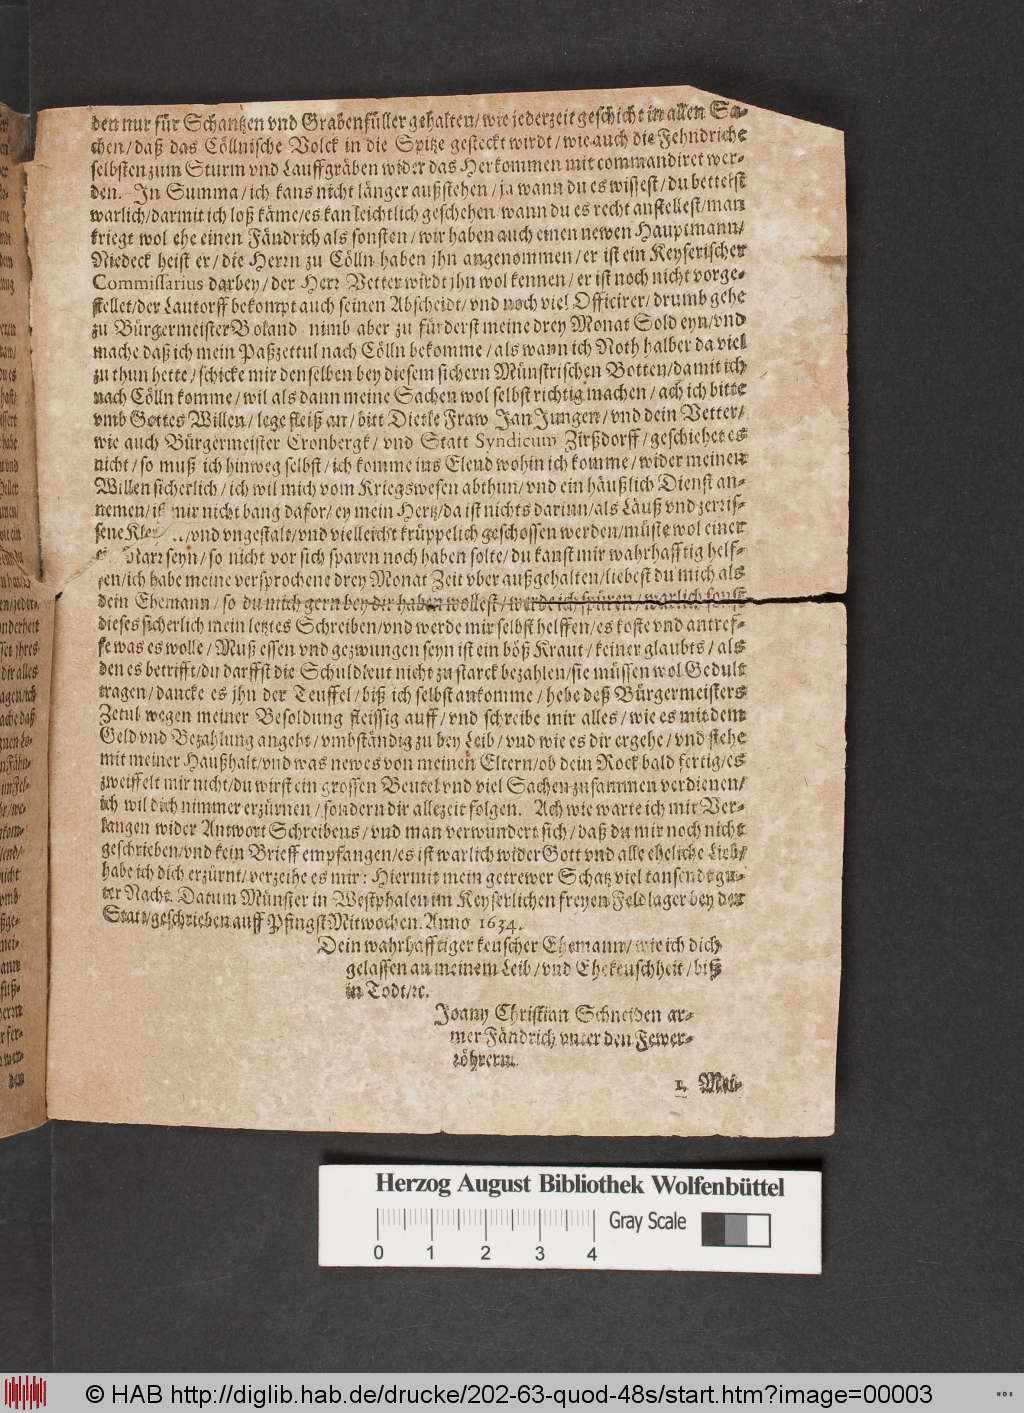 den nur für Schantzen vnd Grabenfüller gehalten / wie jederzeit geschicht in allen Sa-
chen / daß das Cöllnische Volck in die Spitze gesteckt wirdt / wie auch die Fehndriche
selbsten zum Sturm vnd Lauffgräben wider das Herkommen mit commandiret wer-
den. In Summa / ich kans nicht länger außstehen / ja wann du es wistest / du bettetst
warlich / darmit ich loß käme / es kan leichtlich geschehen wann du es recht anstellest / man
kriegt wol ehe einen Fändrich als sonsten / wir haben auch einen newen Hauptmann /
Niedeck heist er / die Herrn zu Cölln haben jhn angenommen / er ist ein Keyserischer
Commissarius darbey / der Herr Vetter wirdt jhn wol kennen / er ist noch nicht vorge-
stellet / der Lautorff bekompt auch seinen Abscheidt / vnd noch viel Officirer / drumb gehe
zu Bürgermeister Boland nimb aber zu förderst meine drey Monat Sold eyn / vnd
mache daß ich mein Paßzettul nach Cölln bekomme / als wann ich Noth halber da viel
zu thun hette / schicke mir denselben bey diesem sichern Münstrischen Botten / damit ich
nach Cölln komme / wil als dann meine Sachen wol selbst richtig machen / ach ich bitte
vmb Gottes Willen / lege fleiß an / bitt Dietle Fraw Jan Jungen / vnd dein Vetter /
wie auch Bürgermeister Cronbergk / vnd Statt Syndicum Zirßdorff / geschiehet es
nicht / so muß ich hinweg selbst / ich komme ins Elend wohin ich komme / wider meinen
Willen sicherlich / ich wil mich vom Kriegswesen abthun / vnd ein häußlich Dienst an-
nemen / ist mir nicht bang dafor / ey mein Hertz / da ist nichts darinn / als Läuß vnd zerris-
sene / vnd vngestalt / vnd vielleicht krüppelich geschossen werden / müste wol einer
Narr seyn / so nicht vor sich sparen noch haben solte / du kanst mir wahrhafftig helf-
fen / ich habe meine versprochene drey Monat Zeit vber außgehalten / liebest du mich als
dein Ehemann / so du mich gern bey dir haben wollest / werde ich spüren / warlich sonst
dieses sicherlich mein letztes Schreiben / vnd werde mir selbst helffen / es koste vnd antref-
fe was es wolle / Muß essen vnd gezwungen seyn ist ein böß Kraut / keiner glaubts / als
den es betrifft / du darffst die Schuldleut nicht zu starck bezahlen / sie müssen wol Gedult
tragen / dancke es jhn der Teuffel / biß ich selbst ankomme / hebe deß Bürgermeisters
Zetul wegen meiner Besoldung fleissig auff / vnd schreibe mir alles / wie es mit dem
Geld vnd Bezahlung angeht / vmbständig zu bey Leib / vnd wie es dir ergehe / vnd stehe
mit meiner Haußhalt / vnd was newes von meinen Eltern / ob dein Rock bald fertig / es
zweiffelt mir nicht / du wirst ein grossen Beutel vnd viel Sachen zusammen verdienen /
ich wil dich nimmer erzürnen / sondern dir allezeit folgen. Ach wie warte ich mit Ver-
langen wider Antwort Schreibens / vnd man verwundert sich / daß du mir noch nicht
geschrieben / vnd kein Brieff empfangen / es ist warlich wider Gott vnd alle eheliche Lieb /
habe ich dich erzürnt / verzeihe es mir: Hiermit mein getrewer Schatz viel tausendt gu-
ter Nacht. Datum Münster in Westphalen im Keyserlichen freyen Feldlager bey der
Statt / geschrieben auff Pfingst Mitwochen. Anno 1634.
Dein wahrhafftiger keuscher Ehemann / wie ich dich
gelassen an meinem Leib / vnd Ehekeuschheit / biß
in Todt / rc.
Joany Christian Schneiden ar-
mer Fändrich vnter den Fewer-
röhrern.
1. Mei-
Herzog August Bibliothek Wolfenbüttel
Gray Scale
0 1 2 3 4
© HAB http://diglib.hab.de/drucke/202-63-quod-48s/start.htm?image=00003